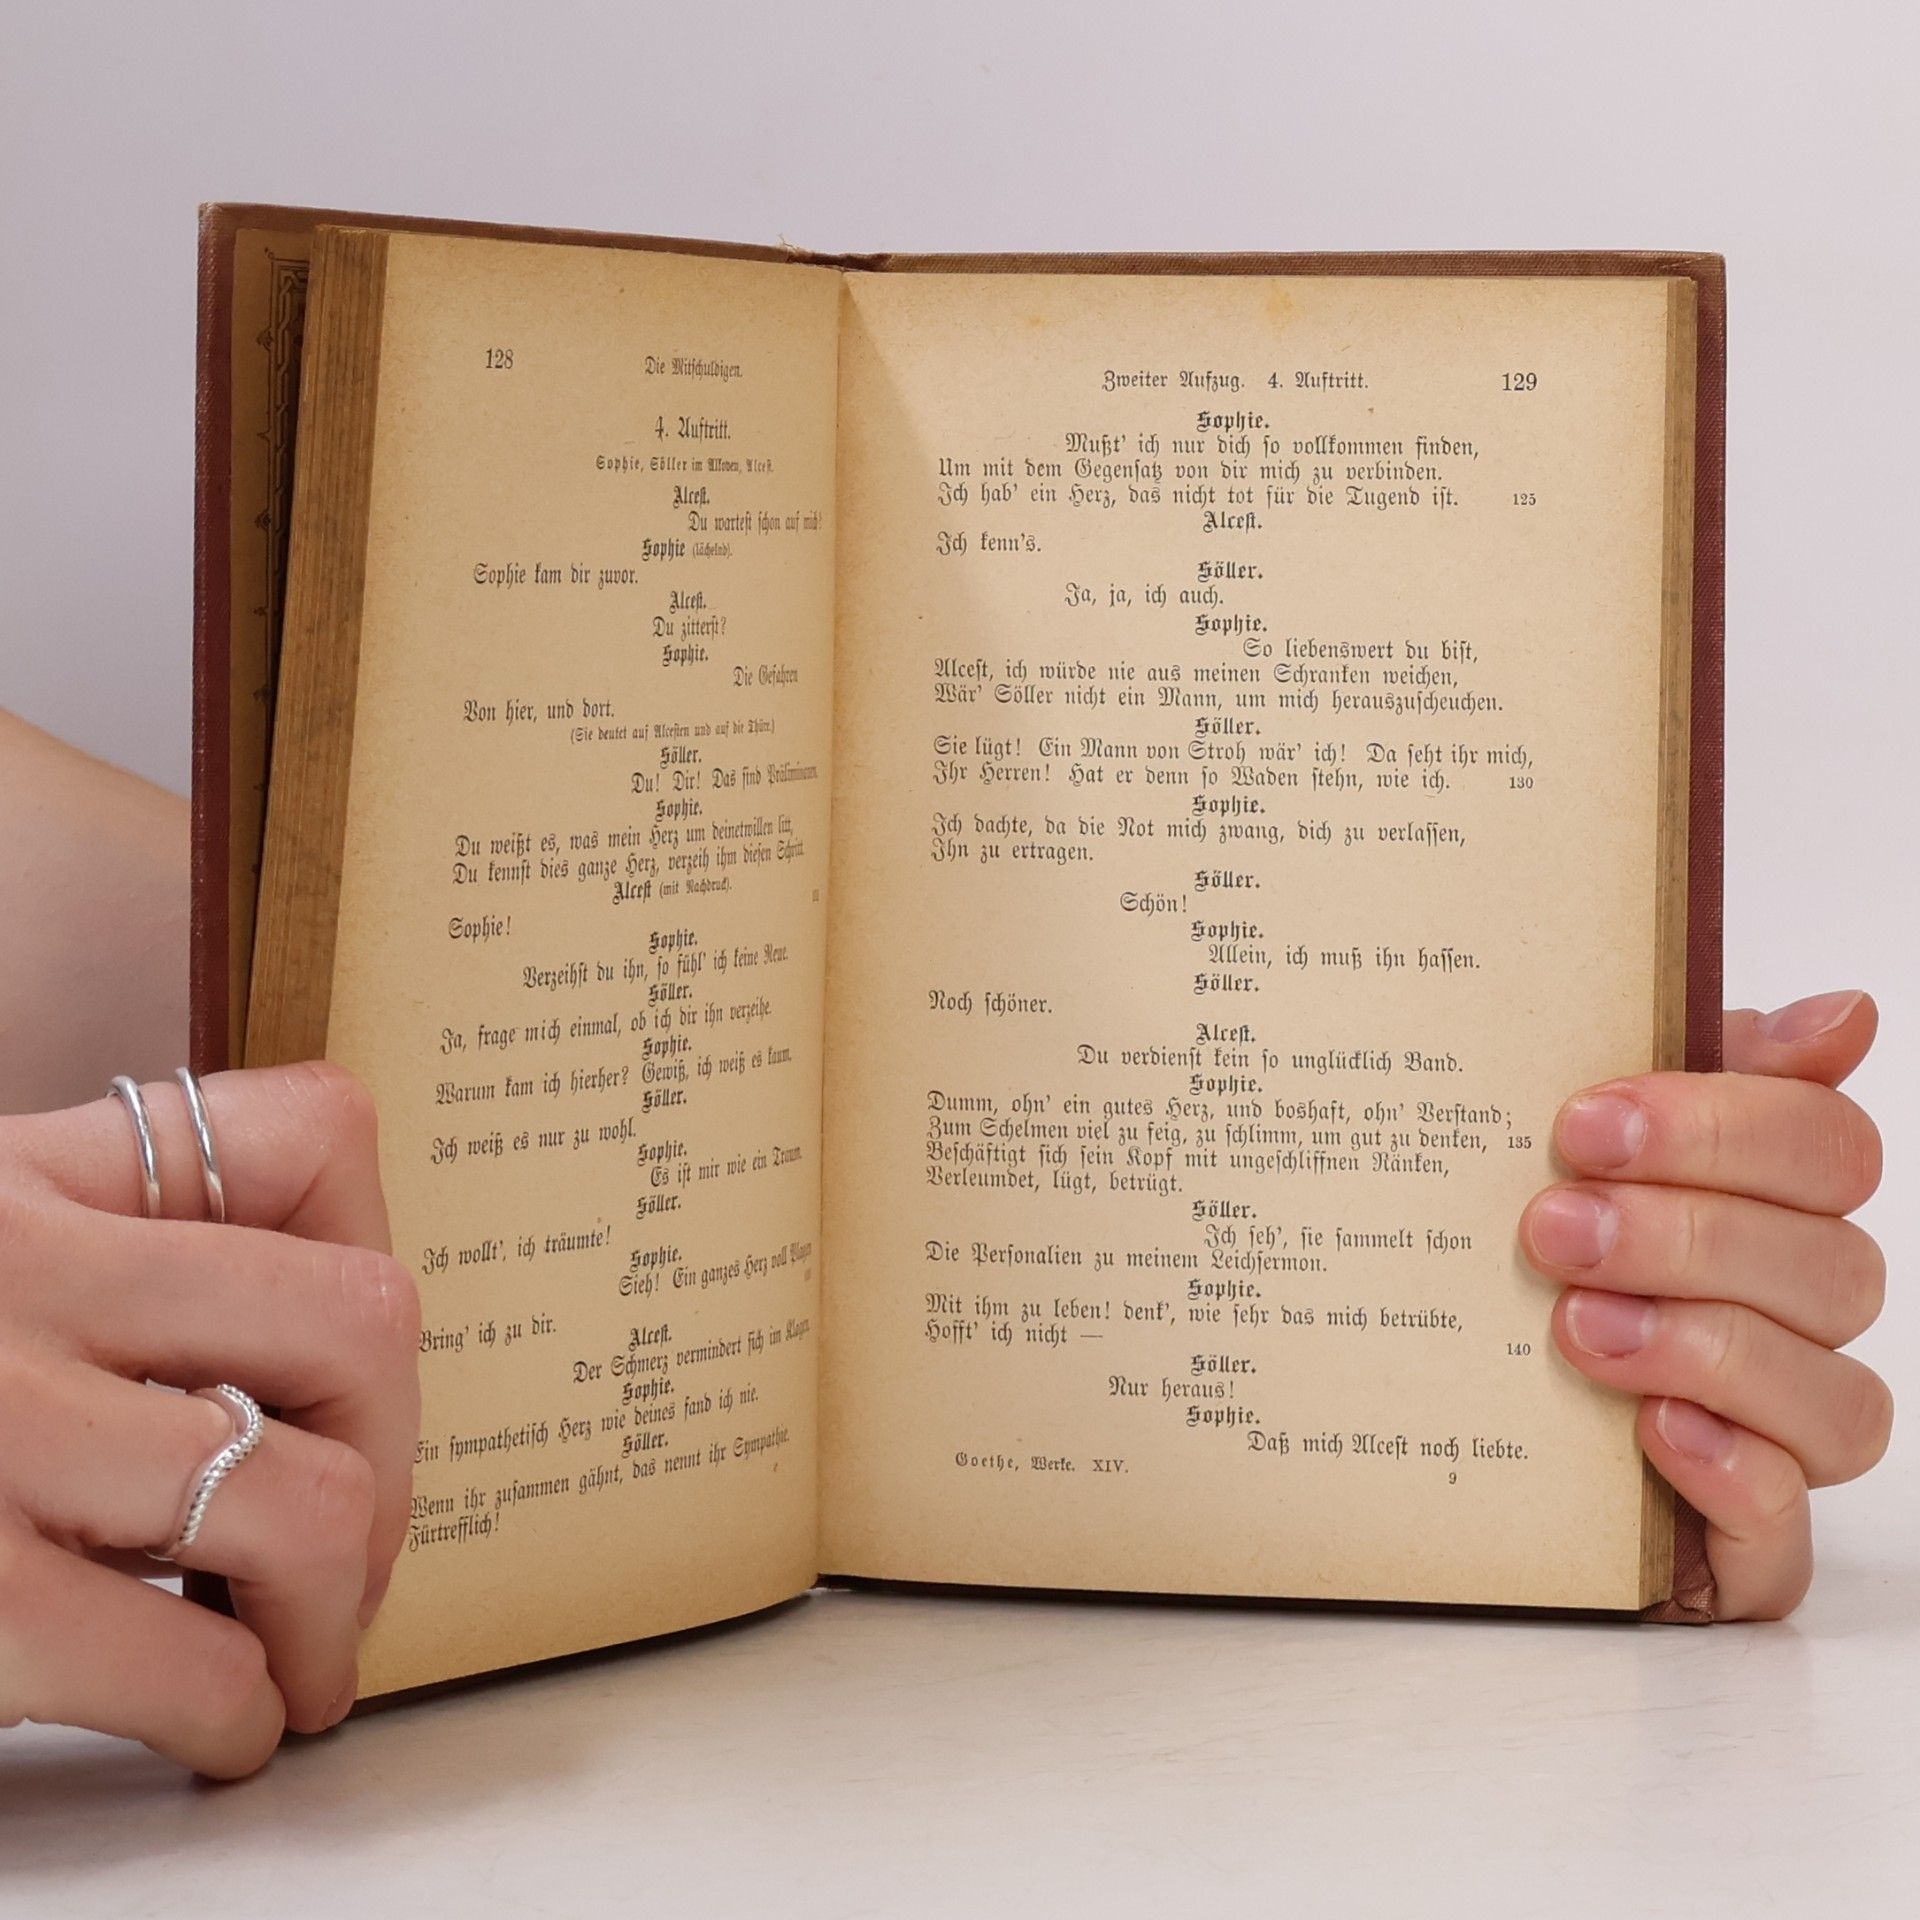 128 Die Mitschuldigen.
4. Auftritt.
Sophie, Söller im Alkoven, Alcest.
Alcest.
Du wartest schon auf mich?
Sophie (lächelnd).
Sophie kam dir zuvor.
Alcest.
Du zitterst?
Sophie.
Die Gefahren
Von hier, und dort.
(Sie deutet auf Alcesten und auf die Thüre.)
Söller.
Du! Dir! Das sind Präliminaren.
Sophie.
Du weißt es, was mein Herz um deinetwillen litt,
Du kennst dies ganze Herz, verzeih ihm diesen Schritt.
Alcest (mit Nachdruck).
Sophie!
Sophie.
Verzeihst du ihn, so fühl' ich keine Reue.
Söller.
Ja, frage mich einmal, ob ich dir ihn verzeihe.
Sophie.
Warum kam ich hierher? Gewiß, ich weiß es kaum.
Söller.
Ich weiß es nur zu wohl.
Sophie.
Es ist mir wie ein Traum.
Söller.
Ich wollt', ich träumte!
Sophie.
Sieh! Ein ganzes Herz voll Plagen
Bring' ich zu dir.
Alcest.
Der Schmerz vermindert sich im Klagen.
Sophie.
Ein sympathetisch Herz wie deines fand ich nie.
Söller.
Wenn ihr zusammen gähnt, das nennt ihr Sympathie.
Fürtrefflich!
Zweiter Aufzug. 4. Auftritt. 129
Sophie.
Mußt' ich nur dich so vollkommen finden,
Um mit dem Gegensatz von dir mich zu verbinden.
Ich hab' ein Herz, das nicht tot für die Tugend ist. 125
Alcest.
Ich kenn's.
Söller.
Ja, ja, ich auch.
Sophie.
So liebenswert du bist,
Alcest, ich würde nie aus meinen Schranken weichen,
Wär' Söller nicht ein Mann, um mich herauszuscheuchen.
Söller.
Sie lügt! Ein Mann von Stroh wär' ich! Da seht ihr mich,
Ihr Herren! Hat er denn so Waden stehn, wie ich. 130
Sophie.
Ich dachte, da die Not mich zwang, dich zu verlassen,
Ihn zu ertragen.
Söller.
Schön!
Sophie.
Allein, ich muß ihn hassen.
Söller.
Noch schöner.
Alcest.
Du verdienst kein so unglücklich Band.
Sophie.
Dumm, ohn' ein gutes Herz, und boshaft, ohn' Verstand;
Zum Schelmen viel zu feig, zu schlimm, um gut zu denken, 135
Beschäftigt sich sein Kopf mit ungeschliffnen Ränken,
Verleumdet, lügt, betrügt.
Söller.
Ich seh', sie sammelt schon
Die Personalien zu meinem Leichsermon.
Sophie.
Mit ihm zu leben! denk', wie sehr das mich betrübte,
Hofft' ich nicht —
140
Söller.
Nur heraus!
Sophie.
Daß mich Alcest noch liebte.
Goethe, Werke. XIV. 9